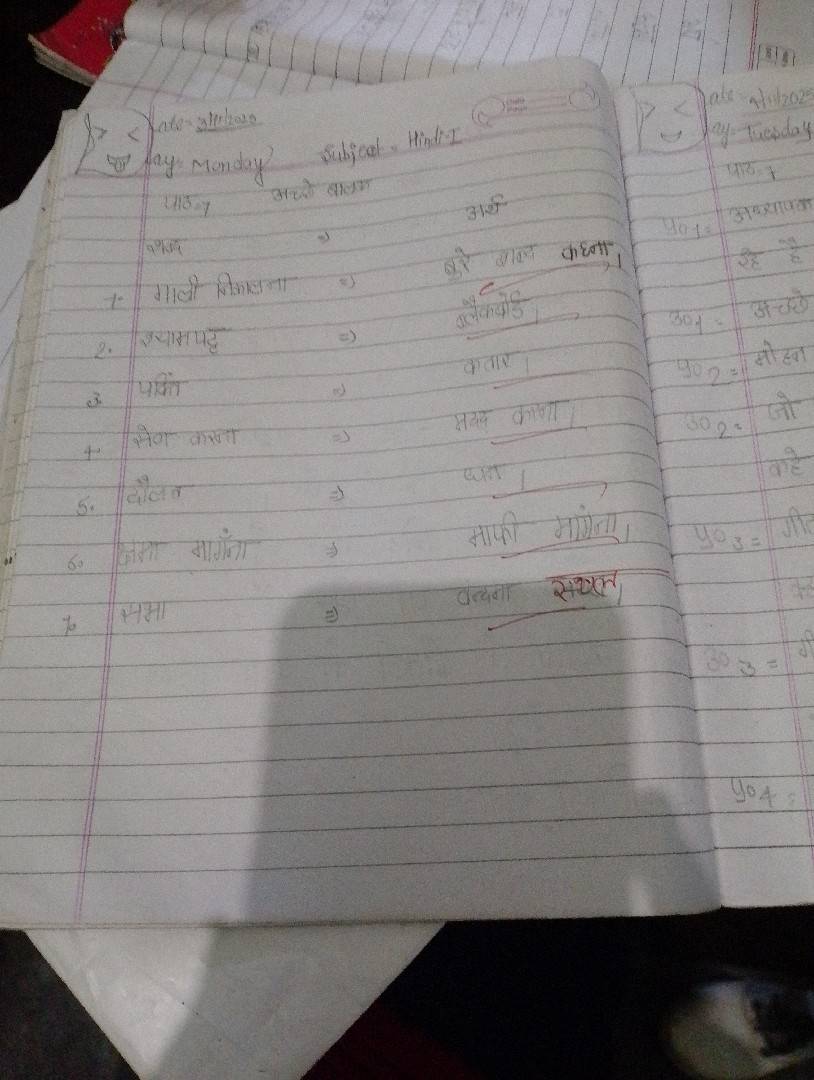 Date = 3/11/2025
Day = Monday Subject = Hindi-I
पाठ-7 अच्छे बालक
शब्द => अर्थ
1. गाली निकालना => बुरे वाक्य कहना।
2. श्यामपट्ट => ब्लैकबोर्ड।
3. पंक्ति => कतार।
4. सेवा करना => मदद करना।
5. दौलत => धन।
6. क्षमा मागँना => माफी मागँना।
7. => स्थल।
ate = 4/11/2025
ay = Tuesday
पाठ-7
प्र01 = अध्यापक
रहे है
उ01 = अच्छे
प्र02 = मोहन
उ02 = जो
कहे
प्र03 =
उ03 =
प्र04 =